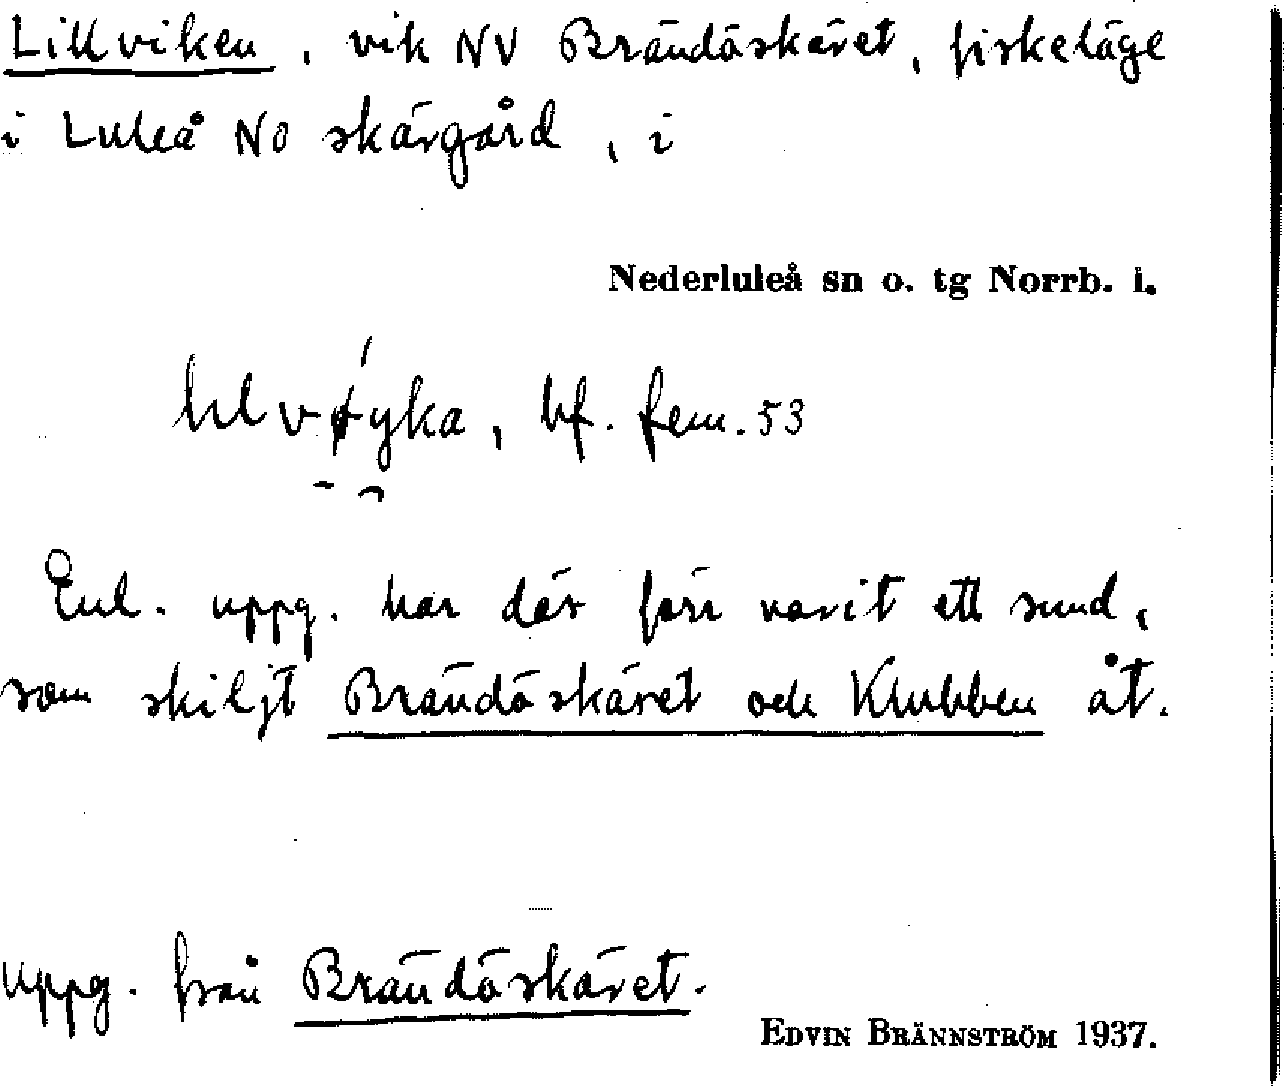 Lillviken, vik NV Brändöskäret, fiskeläge
i Luleå NO skärgård, i
Nederluleå sn o. tg Norrb. l.
bf. fem. 53
Enl. uppg. har där förr varit ett sund,
som skiljt Brändöskäret och Klubben åt.
Uppg. från Brändöskäret.
EDVIN BRÄNNSTRÖM 1937.